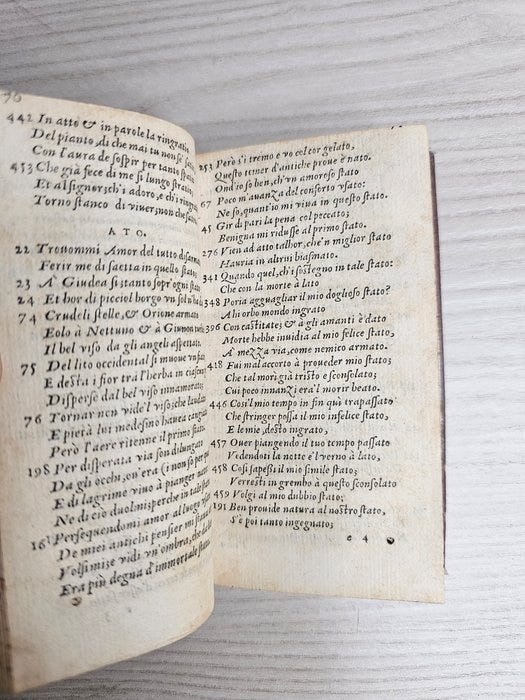 76
442 In atto & in parole la ringratio
Del pianto, di che mai tu non se'
Con l'aura de sospir per tanto
453 Che già fece di me si lungo stratio;
Et al signor, ch'i adoro, e ch'i
Torno stanco di viver, non che
ATO.
22 Trouommi Amor del tutto disarmato
Ferir me di saetta in quello stato
23 A' Giudea sì, tanto sopr'ogni stato
24 Et hor di picciol borgo un sol n'ha
74 Crudeli stelle, & Orione armato
Eolo à Nettuno & à Giunon
Il bel viso da gli angeli aspettato.
75 Del lito occidental si muoue un
E desta i fior tra l'herba in ciascun
Disperso dal bel viso innamorato;
76 Tornar non vide'l viso; che laudato
E pietà lui medesmo haueа cangiato
Però l'aere ritenne il primo stato.
198 Per disperata via son dilungato
Da gli occhi, ou'era (i non so per
E di lagrime viuo à pianger nato:
Ne di ciò duolmi; perche in tale stato
Perseguendomi amor al luogo usato
De miei antichi pensier mi
Volsimi; e vidi un'ombra, che da
Era più degna d'immortale stato.
251 Però s'i tremo e vo col cor gelato,
Questo tener d'antiche proue è nato.
Ond'io so ben, ch'vn amoroso stato
67 Poco m'auanza del conforto vsato:
Ne so, quant'io mi viua in questo stato.
45 Gir di pari la pena col peccato;
Benigna mi ridusse al primo stato.
276 Vien ad altro talhor, che'n miglior stato
Hauria in altrui biasmato.
341 Quando quel, ch'i sostegno in tale stato:
Che con la morte à lato
348 Poria agguagliar il mio doglioso stato?
Ahi orbo mondo ingrato
396 Con castitate; & à gli amanti è dato
Morte hebbe inuidia al mio felice stato;
A' mezza via, come nemico armato.
418 Fui mal accorto à proueder mio stato;
Che tal morì già tristo e sconsolato;
Cui poco innanzi era'l morir beato.
446 Così'l mio tempo in fin quì trapassato
Che stringer possa il mio infelice stato,
E le mie, desto ingrato,
457 Ouer piangendo il tuo tempo passato
Vedendoti la notte e'l verno à lato,
458 Così sapess'i il mio simile stato;
Verresti in grembo à questo sconsolato
459 Volgi al mio dubbio stato;
191 Ben prouide natura al nostro stato,
S'è poi tanto ingegnato;
e 4